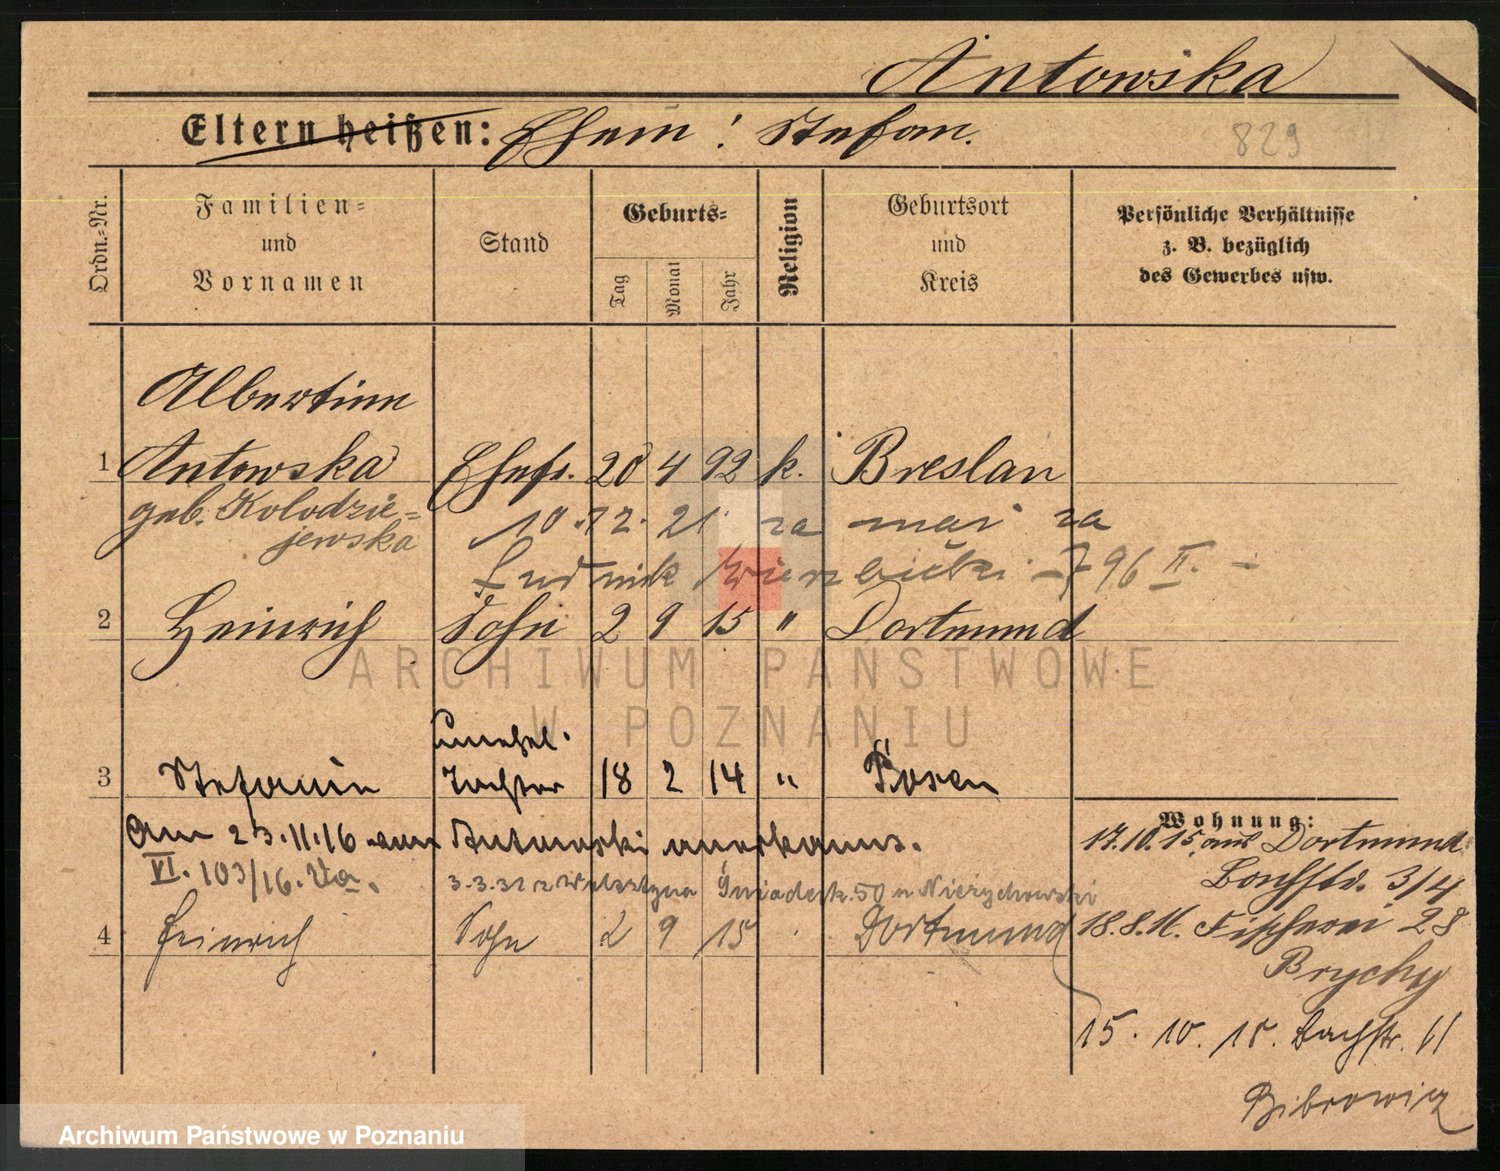 Antowska
Eltern heißen: Ehem: Stefan.
829
Ordn.-Nr.
Familien- und Vornamen
Stand
Geburts-
Tag
Monat
Jahr
Religion
Geburtsort und Kreis
Persönliche Verhältnisse z. B. bezüglich des Gewerbes usw.
Albertine
1 Antowska Ehefr. 20 4 92 k. Breslau
geb. Kolodzie=
jewska
10.12.21 za mai za
Ludwik Wierzbicki - 796 II. -
2 Heinrich Sohn 2 9 15 " Dortmund
ARCHIWUM PAŃSTWOWE
W POZNANIU
unehel.
3 Stefanie Tochter 18 2 14 " Posen
Am 23.11.16 vom Antowski anerkannt.
VI. 103/16. Va.
3.3.32 z Wolsztyna Gniadeck. 50 u Nieżychowski
4 Heinrich Sohn 2 9 15 Dortmund
Wohnung:
17.10.15 aus Dortmund
Bachstr. 3/4
18.8.16. Fischerei 28
Brychy
15. 10. 18. Bachstr. 11
Bibrowicz
Archiwum Państwowe w Poznaniu